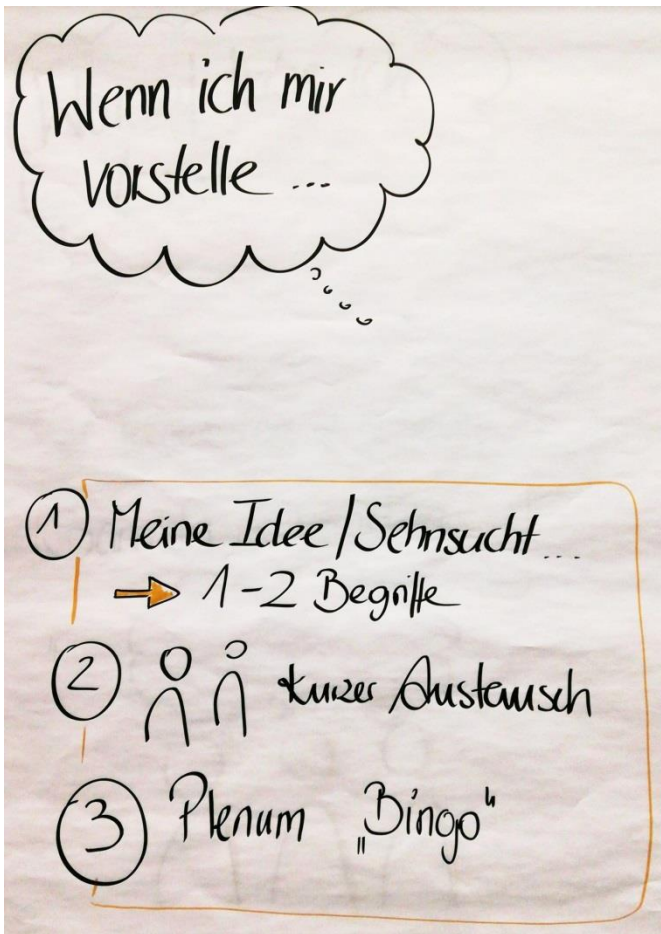 Wenn ich mir
vorstelle ...
1 Meine Idee/Sehnsucht...
→ 1-2 Begriffe
2 kurzer Austausch
3 Plenum „Bingo“